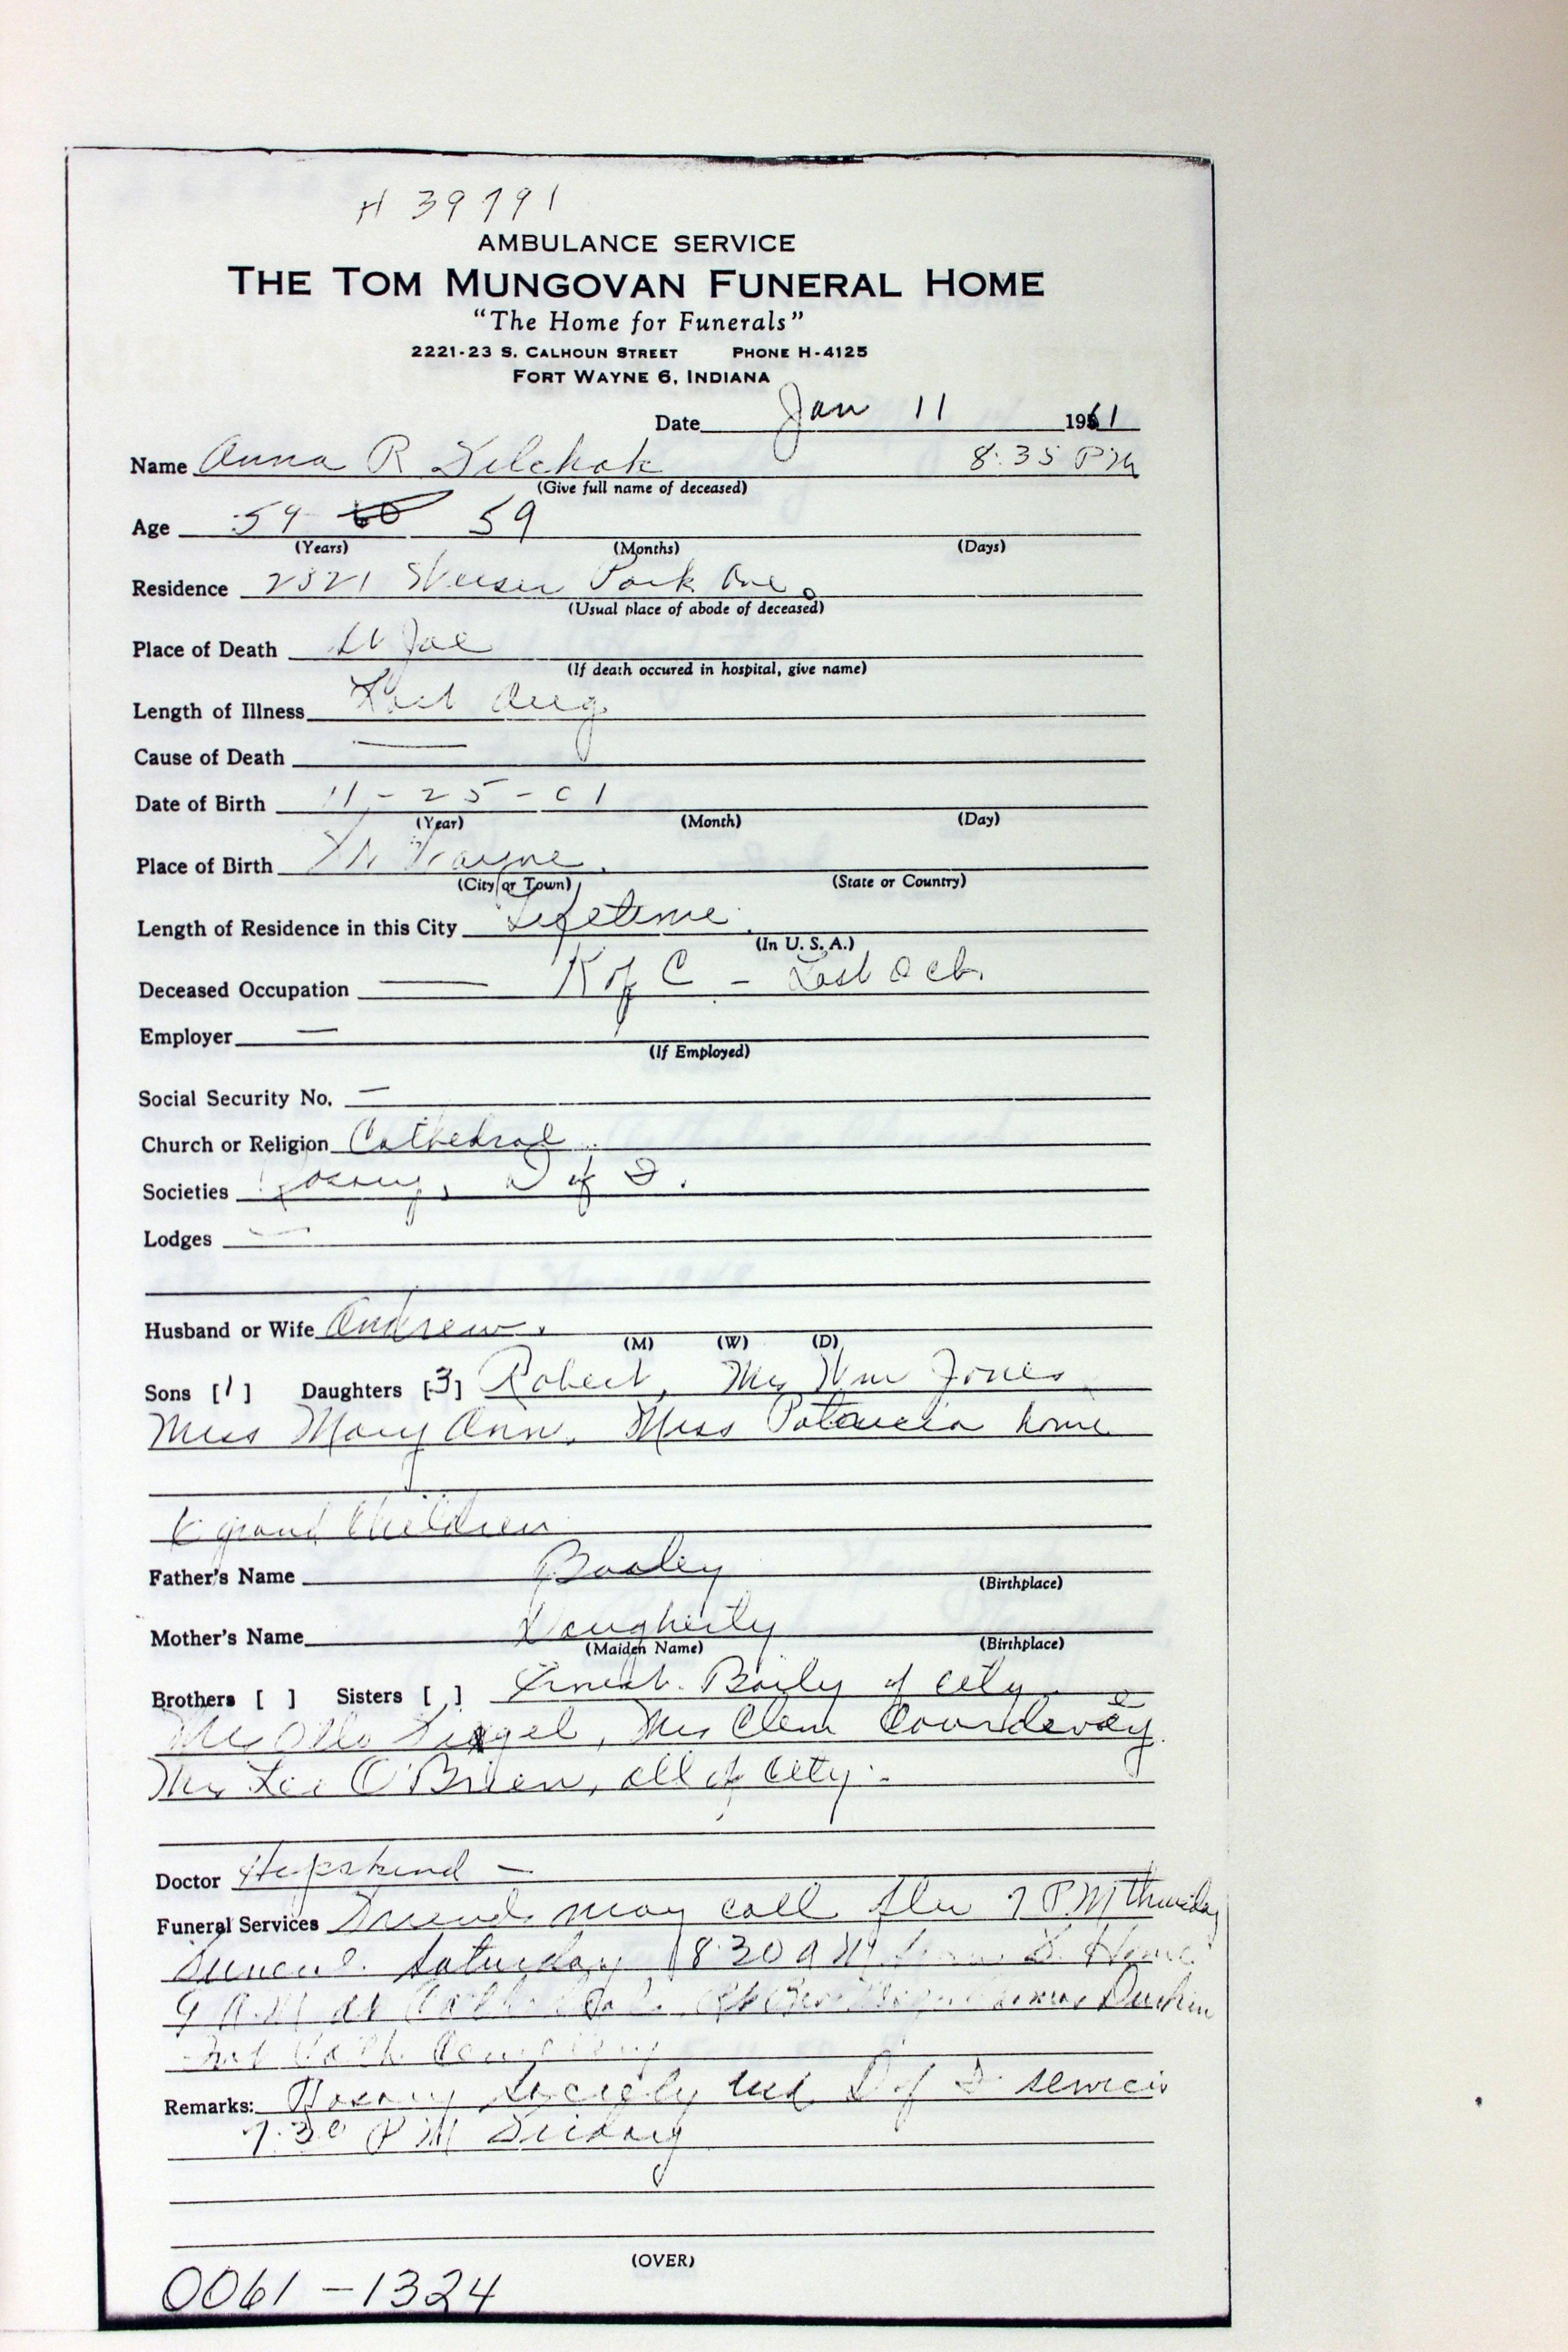 H 39791
AMBULANCE SERVICE
THE TOM MUNGOVAN FUNERAL HOME
"The Home for Funerals"
2221-23 S. CALHOUN STREET PHONE H-4125
FORT WAYNE 6, INDIANA
Date Jan 11 1961
Name Anna R 8:35 PM
(Give full name of deceased)
Age 59 60 59
(Years) (Months) (Days)
Residence 2321 Weiser Park Ave.
(Usual place of abode of deceased)
Place of Death St Joe
(If death occured in hospital, give name)
Length of Illness Last Aug.
Cause of Death —
Date of Birth 11-25-01
(Year) (Month) (Day)
Place of Birth Ft Wayne.
(City or Town) (State or Country)
Length of Residence in this City Lifetime.
(In U. S. A.)
Deceased Occupation — K of C - Last Oct.
Employer —
(If Employed)
Social Security No. —
Church or Religion Cathedral
Societies Rosary, D of I.
Lodges —
Husband or Wife Andrew.
(M) (W) (D)
Sons [1] Daughters [3] Robert, Mrs Wm Jones
Miss Mary Ann, Miss Patricia home
grand Children
Father's Name
(Birthplace)
Mother's Name Dougherty
(Maiden Name) (Birthplace)
Brothers [ ] Sisters [ ] Ernest Baily of city
Mrs Otto Mrs Clem
Mrs Leo O'Brien, all of city.
Doctor
Funeral Services Friends may call after 7 PM Thursday
Funeral Saturday 8:30 AM from F. Home
9 A.M at Cathedral. Rt Rev Durkin
Cath. Cemetery
Remarks: Rosary Society and D of I services
7:30 PM Friday
(OVER)
0061-1324